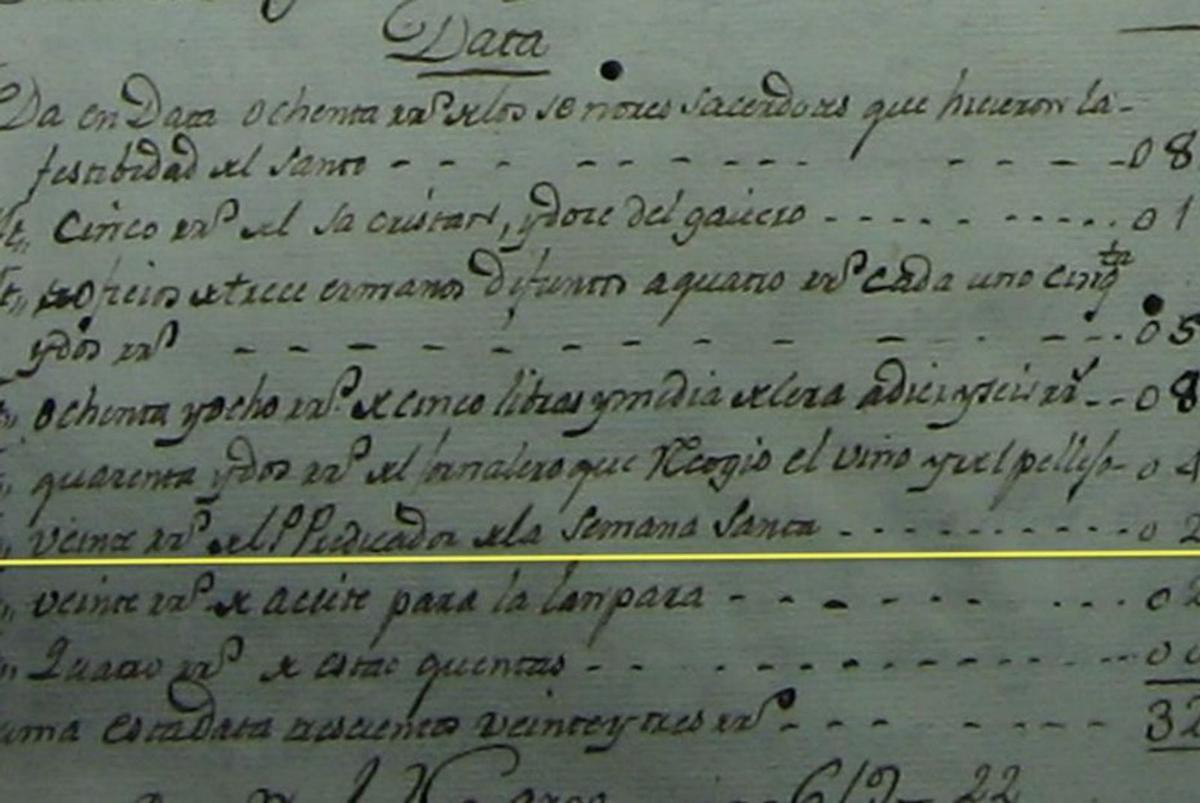 Data
Da en Data ochenta rr.s de los señores sacerdotes que hicieron la
festibidad del santo - - - - - - - - - - - - - 08
Yt,, cinco rr.s del sacristan, y doze del gaitero - - - - - - - - 01
Yt,, oficios de trece ermanos difuntos a quatro rr.s cada uno cinq.ta
y dos rr.s - - - - - - - - - - - - - 05
ochenta y ocho rr.s de cinco libras y media de cera a diez y seis rr.s - - 08
quarenta y dos rr.s del que Recogio el vino y del pellejo - 04
veinte rr.s del P. Predicador de la Semana Santa - - - - - - - - 02
veinte rr.s de aceite para la lanpara - - - - - - - - - - 02
Quatro rr.s de estas quentas - - - - - - - - - - - 00
uma esta data trescientos veinte y tres rr.s - - - - - - - - 32